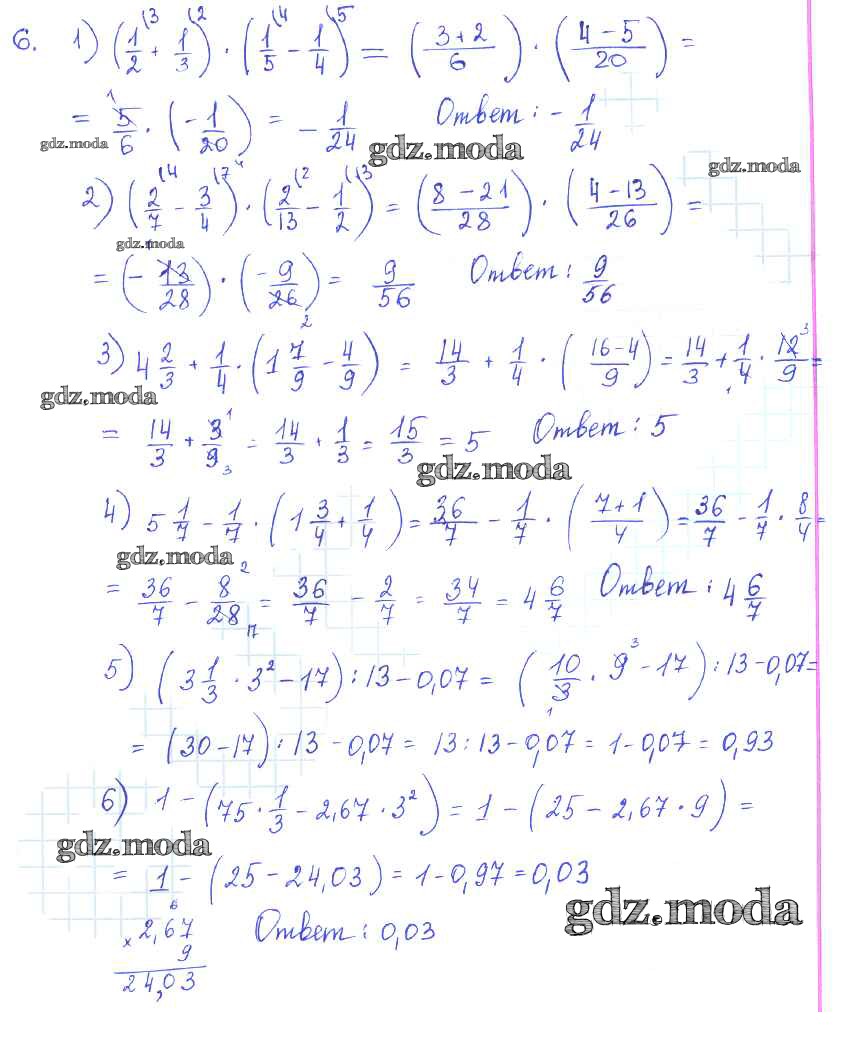 6. 1) (1/2 + 1/3) · (1/5 − 1/4) = ((3+2)/6) · ((4−5)/20) =
= 5/6 · (−1/20) = −1/24 Ответ: −1/24
gdz.moda gdz.moda gdz.moda
2) (2/7 − 3/4) · (2/13 − 1/2) = ((8−21)/28) · ((4−13)/26) =
gdz.moda
= (−13/28) · (−9/26) = 9/56 Ответ: 9/56
3) 4 2/3 + 1/4 · (1 7/9 − 4/9) = 14/3 + 1/4 · ((16−4)/9) = 14/3 + 1/4 · 12/9 =
gdz.moda
= 14/3 + 3/9 = 14/3 + 1/3 = 15/3 = 5 Ответ: 5
gdz.moda
4) 5 1/7 − 1/7 · (1 3/4 + 1/4) = 36/7 − 1/7 · ((7+1)/4) = 36/7 − 1/7 · 8/4 =
gdz.moda
= 36/7 − 8/28 = 36/7 − 2/7 = 34/7 = 4 6/7 Ответ: 4 6/7
5) (3 1/3 · 3² − 17) : 13 − 0,07 = (10/3 · 9 − 17) : 13 − 0,07 =
= (30 − 17) : 13 − 0,07 = 13 : 13 − 0,07 = 1 − 0,07 = 0,93
6) 1 − (75 · 1/3 − 2,67 · 3²) = 1 − (25 − 2,67 · 9) =
gdz.moda
= 1 − (25 − 24,03) = 1 − 0,97 = 0,03
gdz.moda
6
× 2,67 Ответ: 0,03
9
24,03